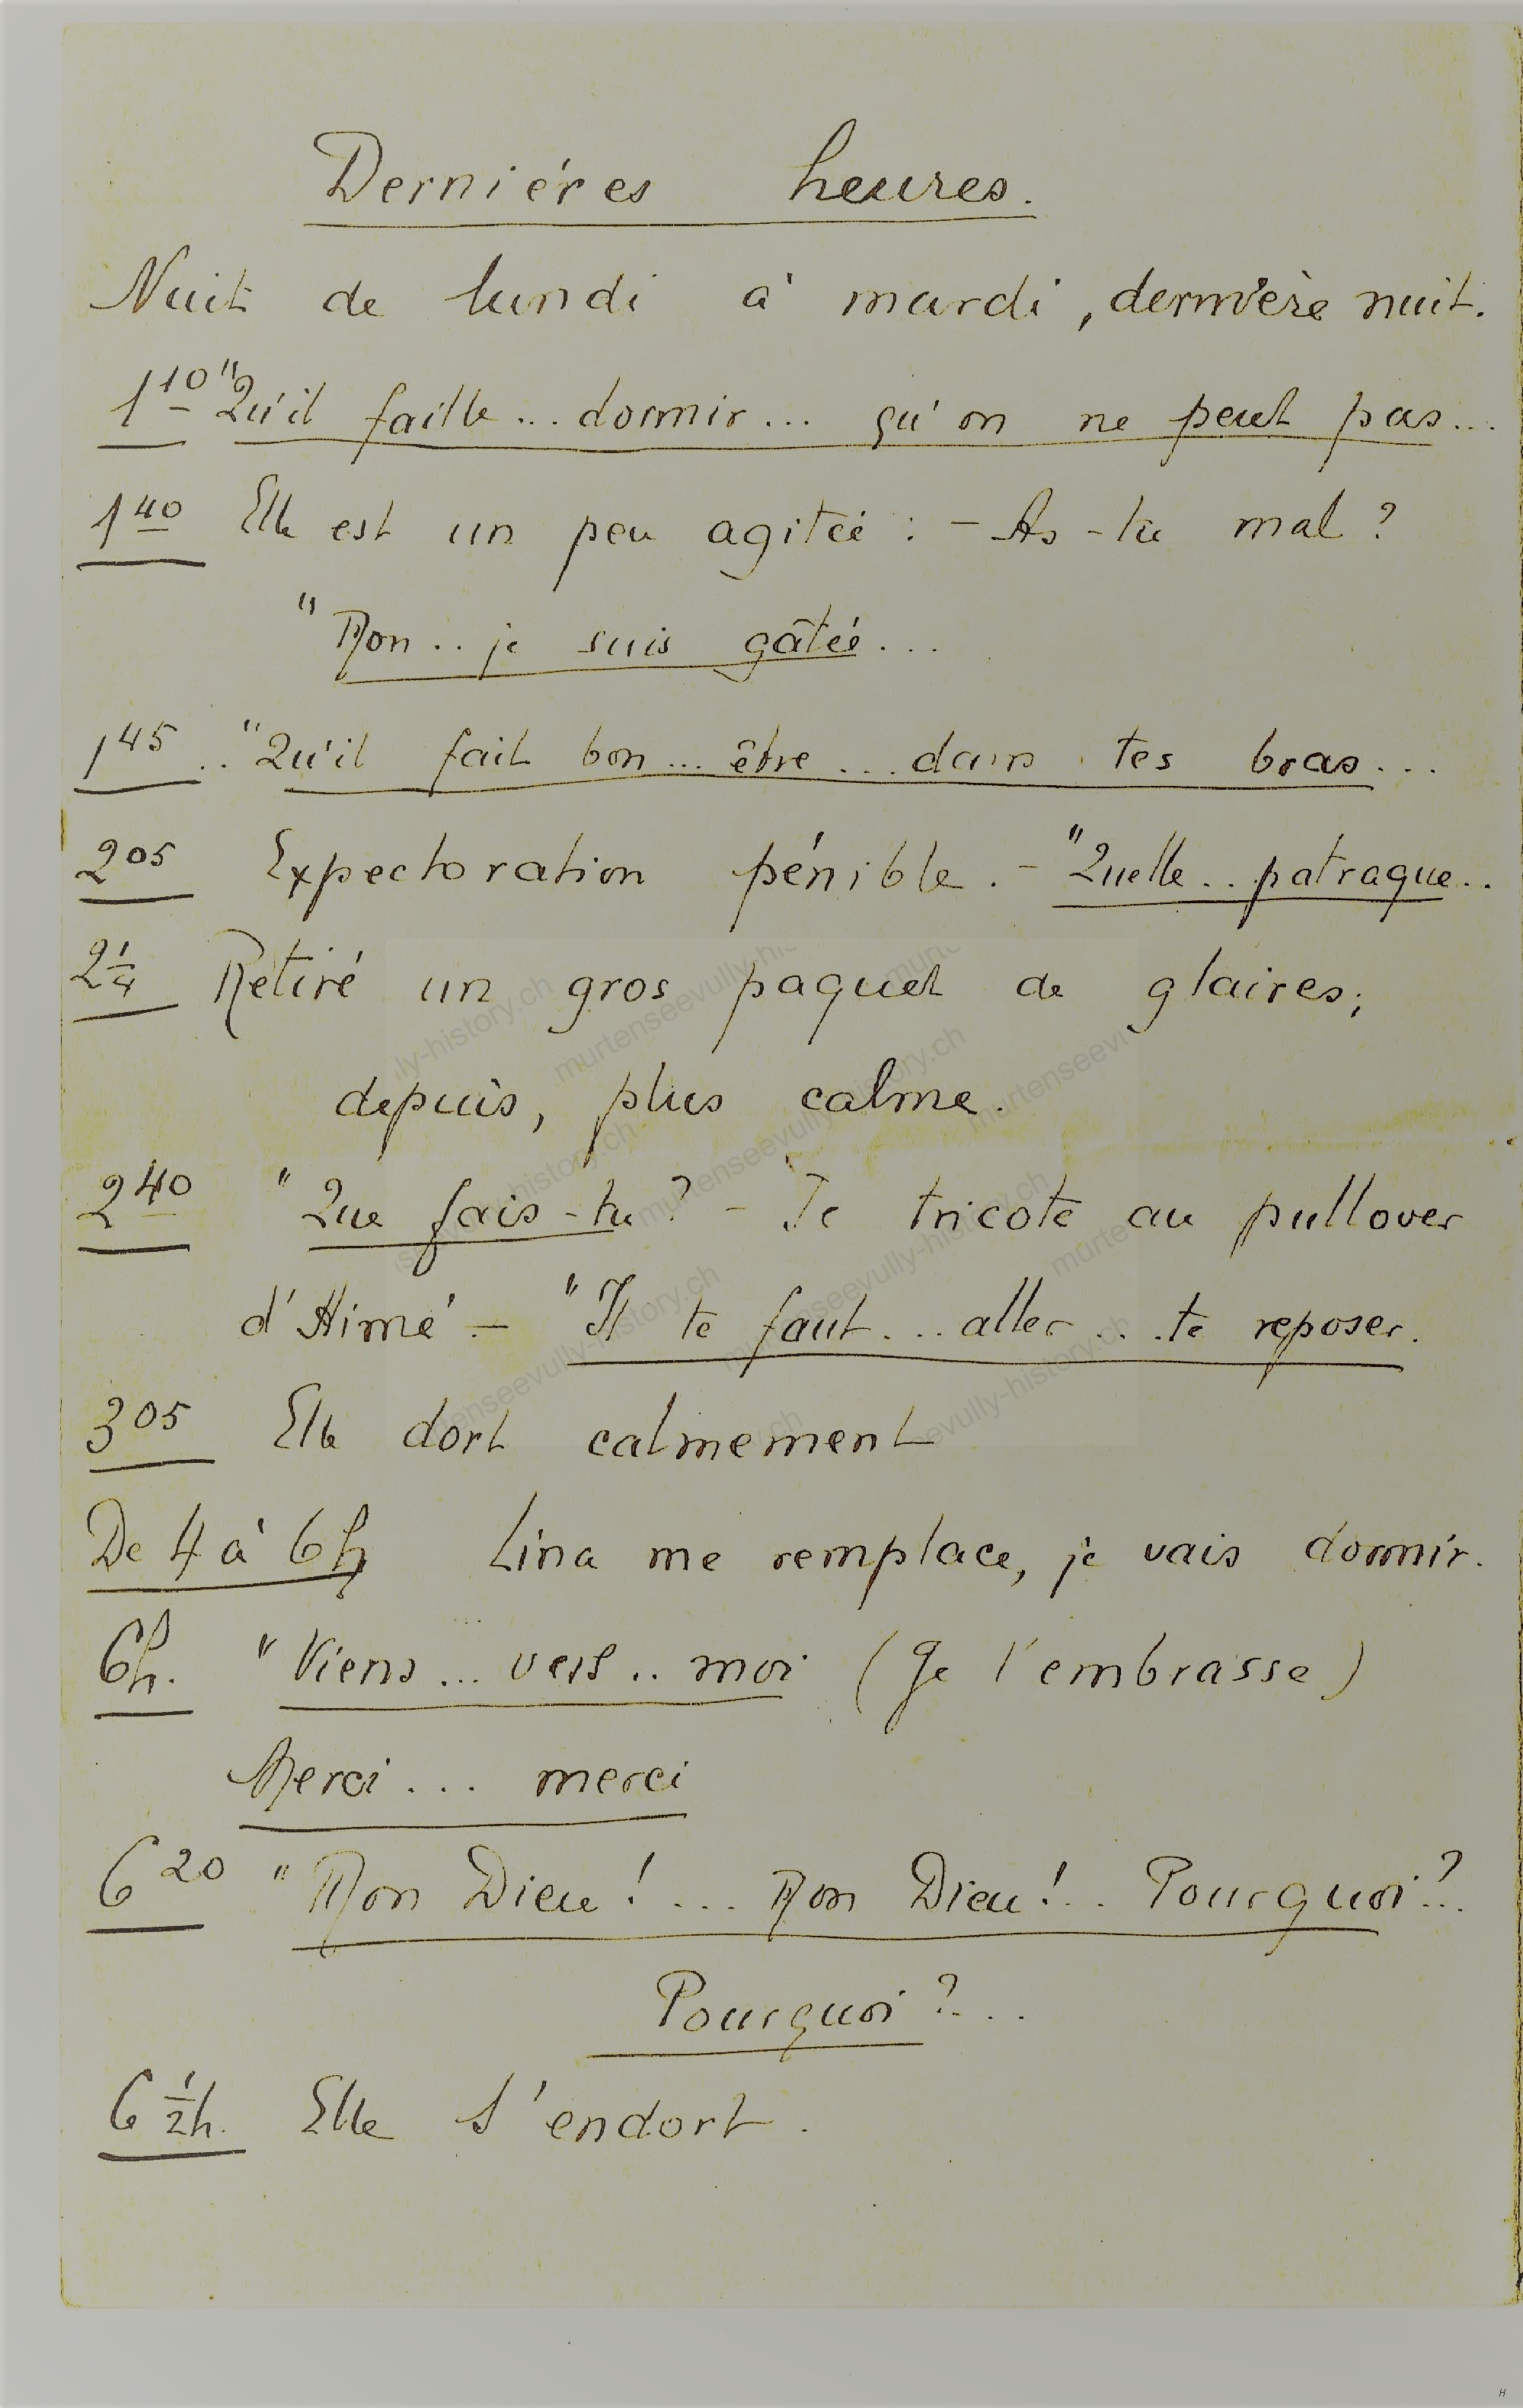 Derniéres heures.
Nuit de lundi à mardi, dernière nuit.
1 10 "Qu'il faille... dormir... qu'on ne peut pas...
1 40 Elle est un peu agitée : - As-tu mal ?
"Non.. je suis gâtée...
1 45 .. "Qu'il fait bon... être... dans tes bras...
2 05 Expectoration pénible. - "Quelle.. patraque..
2 1/4 Retiré un gros paquet de glaires;
depuis, plus calme.
2 40 "Que fais-tu ? - Je tricote au pullover
d'Aimé - "Il te faut... aller... te reposer.
3 05 Elle dort calmement
De 4 à 6h Lina me remplace, je vais dormir.
6h. "Viens... vers.. moi (Je l'embrasse)
Merci... merci
6 20 "Mon Dieu !... Mon Dieu !.. Pourquoi ?..
Pourquoi ?...
6 1/2 h. Elle s'endort.
murtenseevully-history.ch